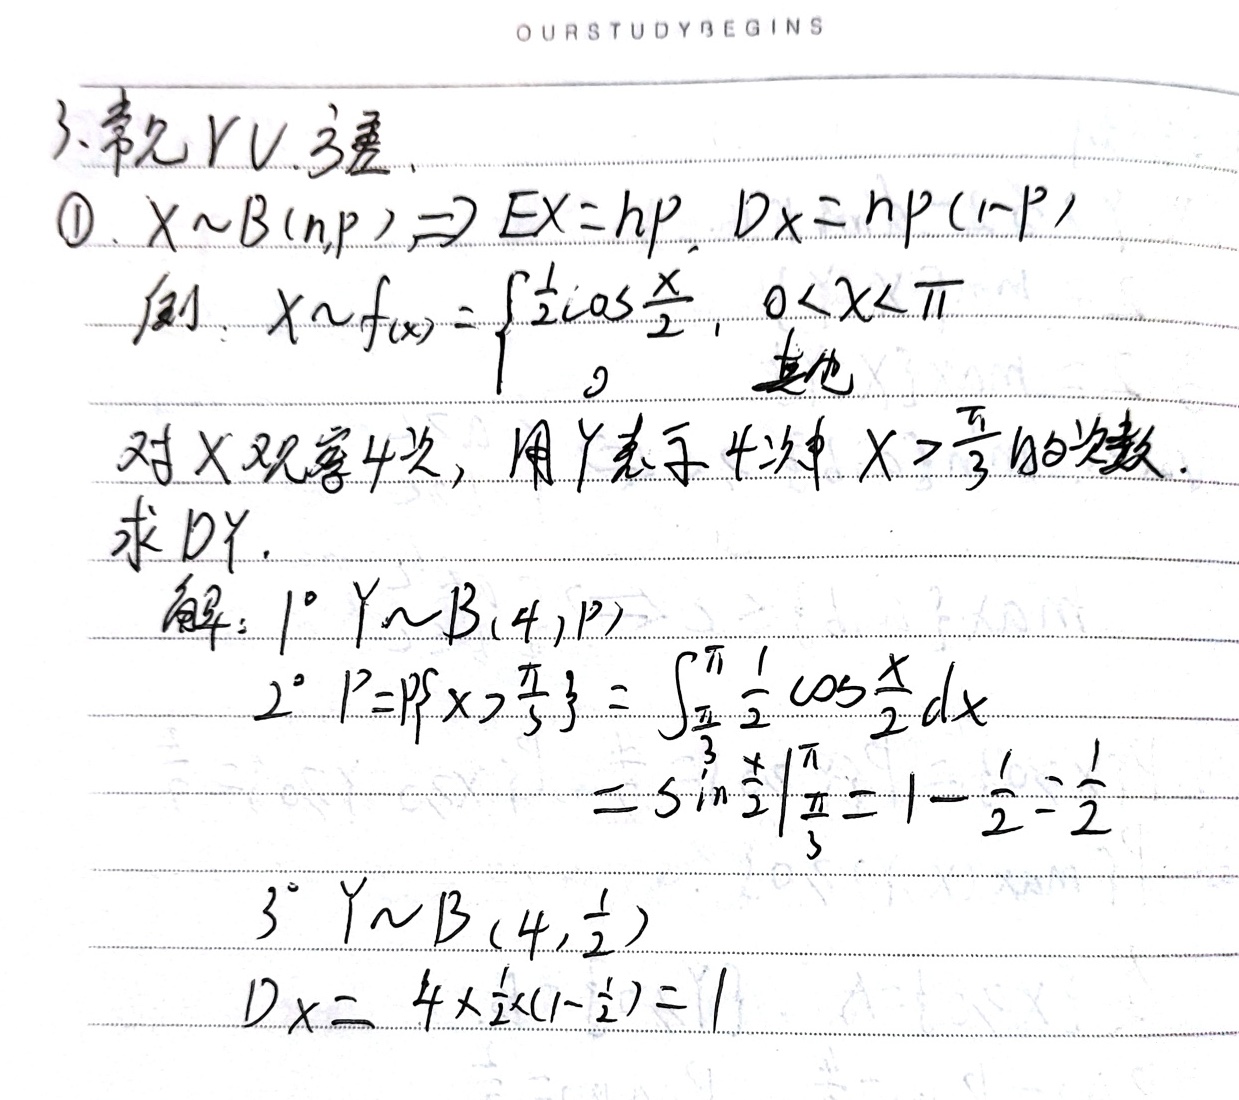 OURSTUDYBEGINS
3、常见 r V. 方差.
①. X~B(n,p) ⇒ EX=np. DX=np(1-p)
例. X~f(x) = { 1/2 cos x/2, 0<x<π
0 其他
对X观察4次, 用Y表示4次中 X>π/3的次数.
求DY.
解: 1° Y~B(4,P)
2° P=P{X>π/3} = ∫_{π/3}^{π} 1/2 cos x/2 dx
= sin x/2 |_{π/3}^{π} = 1 - 1/2 = 1/2
3° Y~B(4, 1/2)
DX = 4×1/2×(1-1/2) = 1